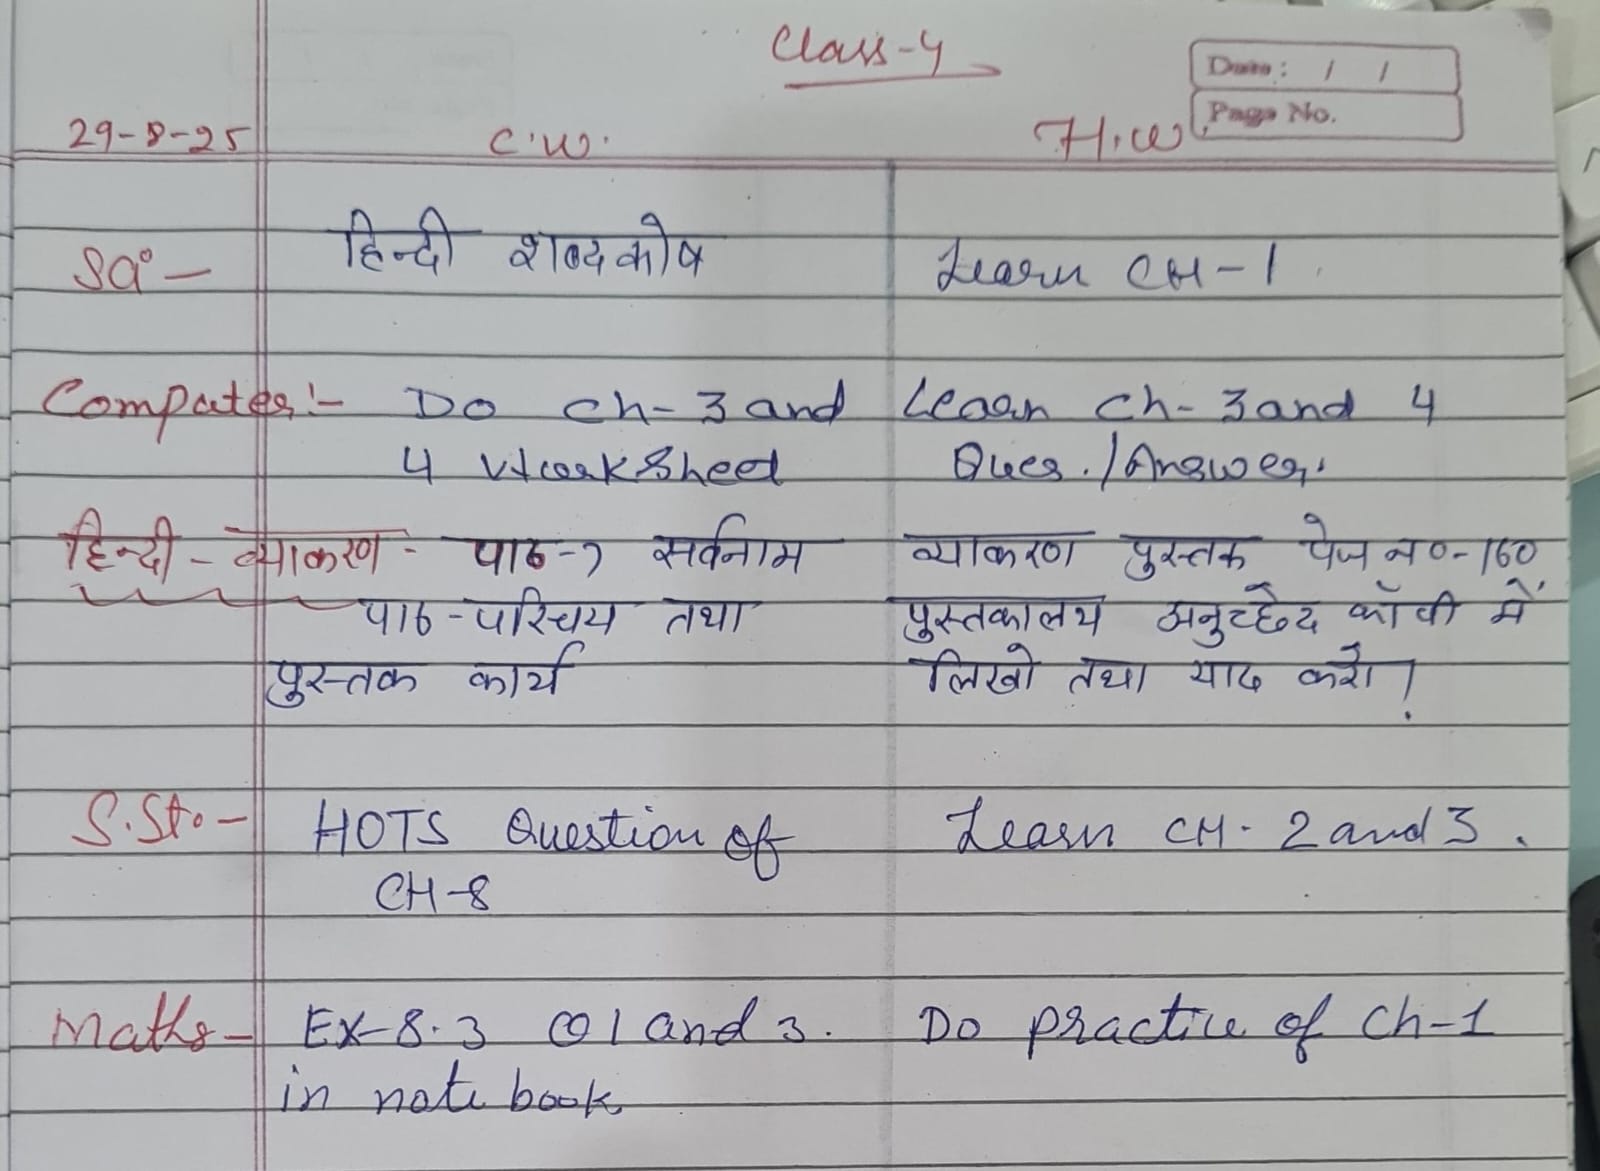 Class-4
Date: / /
Page No.
29-8-25 C.W. H.W.
हिन्दी शब्दकोष
Sa° - Learn CH-1
Computer:- Do Ch-3 and Learn Ch-3 and 4
4 Worksheet Ques./Answer.
हिन्दी - व्याकरण - पाठ-7 सर्वनाम व्याकरण पुस्तक पेज न०-160
पाठ-परिचय तथा पुस्तकालय अनुच्छेद कॉपी में
पुस्तक कार्य लिखो तथा याद करो।
S.St.- HOTS Question of Learn CH-2 and 3.
CH-8
Maths- Ex-8.3 Q1 and 3. Do practice of Ch-1
in note book